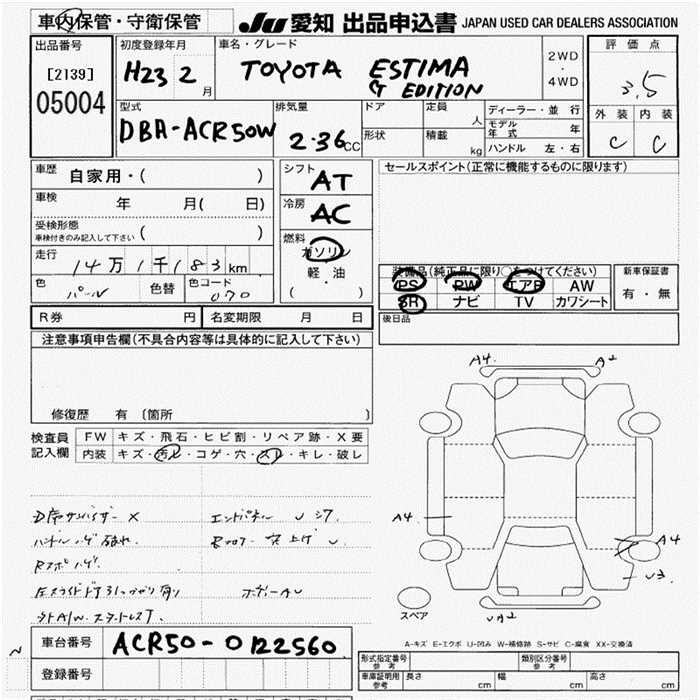 車内保管・守衛保管
JU 愛知 出品申込書 JAPAN USED CAR DEALERS ASSOCIATION
出品番号
[2139]
05004
初度登録年月
H23 2 月
車名・グレード
TOYOTA ESTIMA
G EDITION
2WD
・
4WD
評価点
3.5
外装 内装
C C
型式
DBA-ACR50W
排気量
2.36 CC
ドア
形状
定員 人
積載 kg
ディーラー・並行
モデル年式 年
ハンドル 左・右
車歴
自家用・( )
車検 年 月( 日)
受検形態
車検付きのみ記入して下さい ( )
走行
14万1千183km
色
パール
色替
色コード
070
シフト
AT
冷房
AC
燃料
ガソリン
軽・油
( )
セールスポイント(正常に機能するものに限ります)
装備品(純正品に限り○をつけてください)
PS PW エアB AW
SR ナビ TV カワシート
新車保証書
有・無
後日品
R券 円 名変期限 月 日
注意事項申告欄(不具合内容等は具体的に記入して下さい)
修復歴 有〔箇所
検査員
記入欄
FW キズ・飛石・ヒビ割・リペア跡・X要
内装 キズ・汚レ・コゲ・穴・スレ・キレ・破レ
D席サンバイザー X
ハンドルハゲ
エンドパネル U
ボディーAU
A4
A2
A4
A4
U3
UA2
スペア
A-キズ E-エクボ U-凹み W-補修跡 S-サビ C-腐食 XX-交換済
車台番号
ACR50-0122560
登録番号
形式指定番号
参考
類別区分番号
参考
車庫証明用
参考
長さ cm
幅 cm
高さ cm